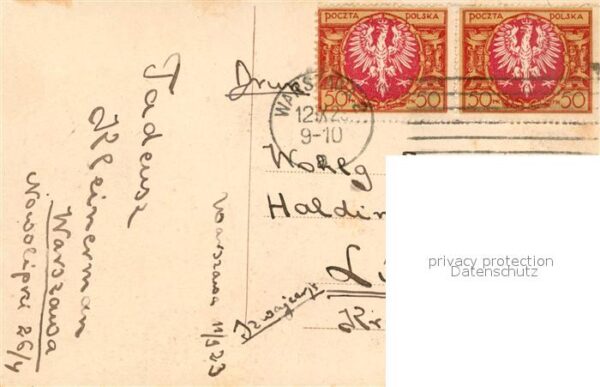 POCZTA POLSKA
50 50
POCZTA POLSKA
50 50
WARS
12.IX.23
9-10
Druk
Tadeusz
Kleinerman
Warszawa
Nowolipki 26/4
Warszawa 11/9 23
Haldin
Szwajcarja
Kr
privacy protection
Datenschutz